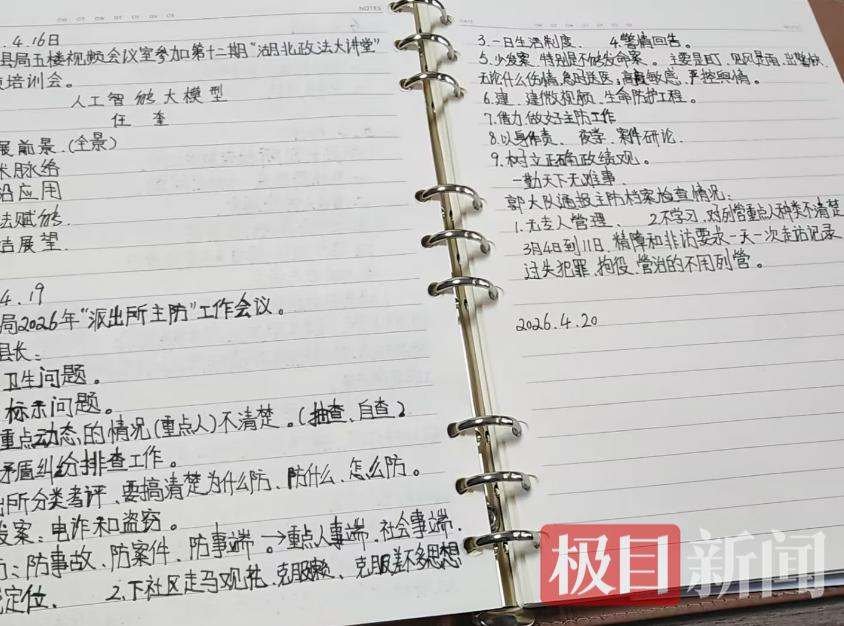 .4.16日
县局五楼视频会议室参加第十二期“湖北政法大讲堂”
培训会。
人工智能大模型
任奎
展前景.(全景)
脉络
沿应用
法赋能
展望
4.19
局2026年“派出所主防”工作会议。
县长:
卫生问题。
标示问题。
重点动态的情况(重点人)不清楚。(抽查、自查)
矛盾纠纷排查工作。
出所分类考评、要搞清楚为什么防、防什么、怎么防。
发案:电诈和盗窃。
防:防事故、防案件、防事端。→重点人事端、社会事端.
定位、 2.下社区走马观花、克服懒、克服差不多思想
NOTES
DATE
3.一日生活制度. 4.警情回告。
5.少发案、特别是不能发命案。主要是盯、见风见雨、
无论什么伤情、急时送医,高度敏感、严控舆情。
6.建、建微视频、生命防护工程。
7.借力、做好主防工作
8.以身作责、夜学、案件研论.
9.树立正确政绩观。
一勤天下无难事.
郭大队通报主防档案检查情况:
1.无专人管理、 2.不学习,对列管重点人种类不清楚
3月4日到11日,精障和非访要求一天一次走访记录
过失犯罪、拘役、管治的不用列管。
2026.4.20
极目新闻